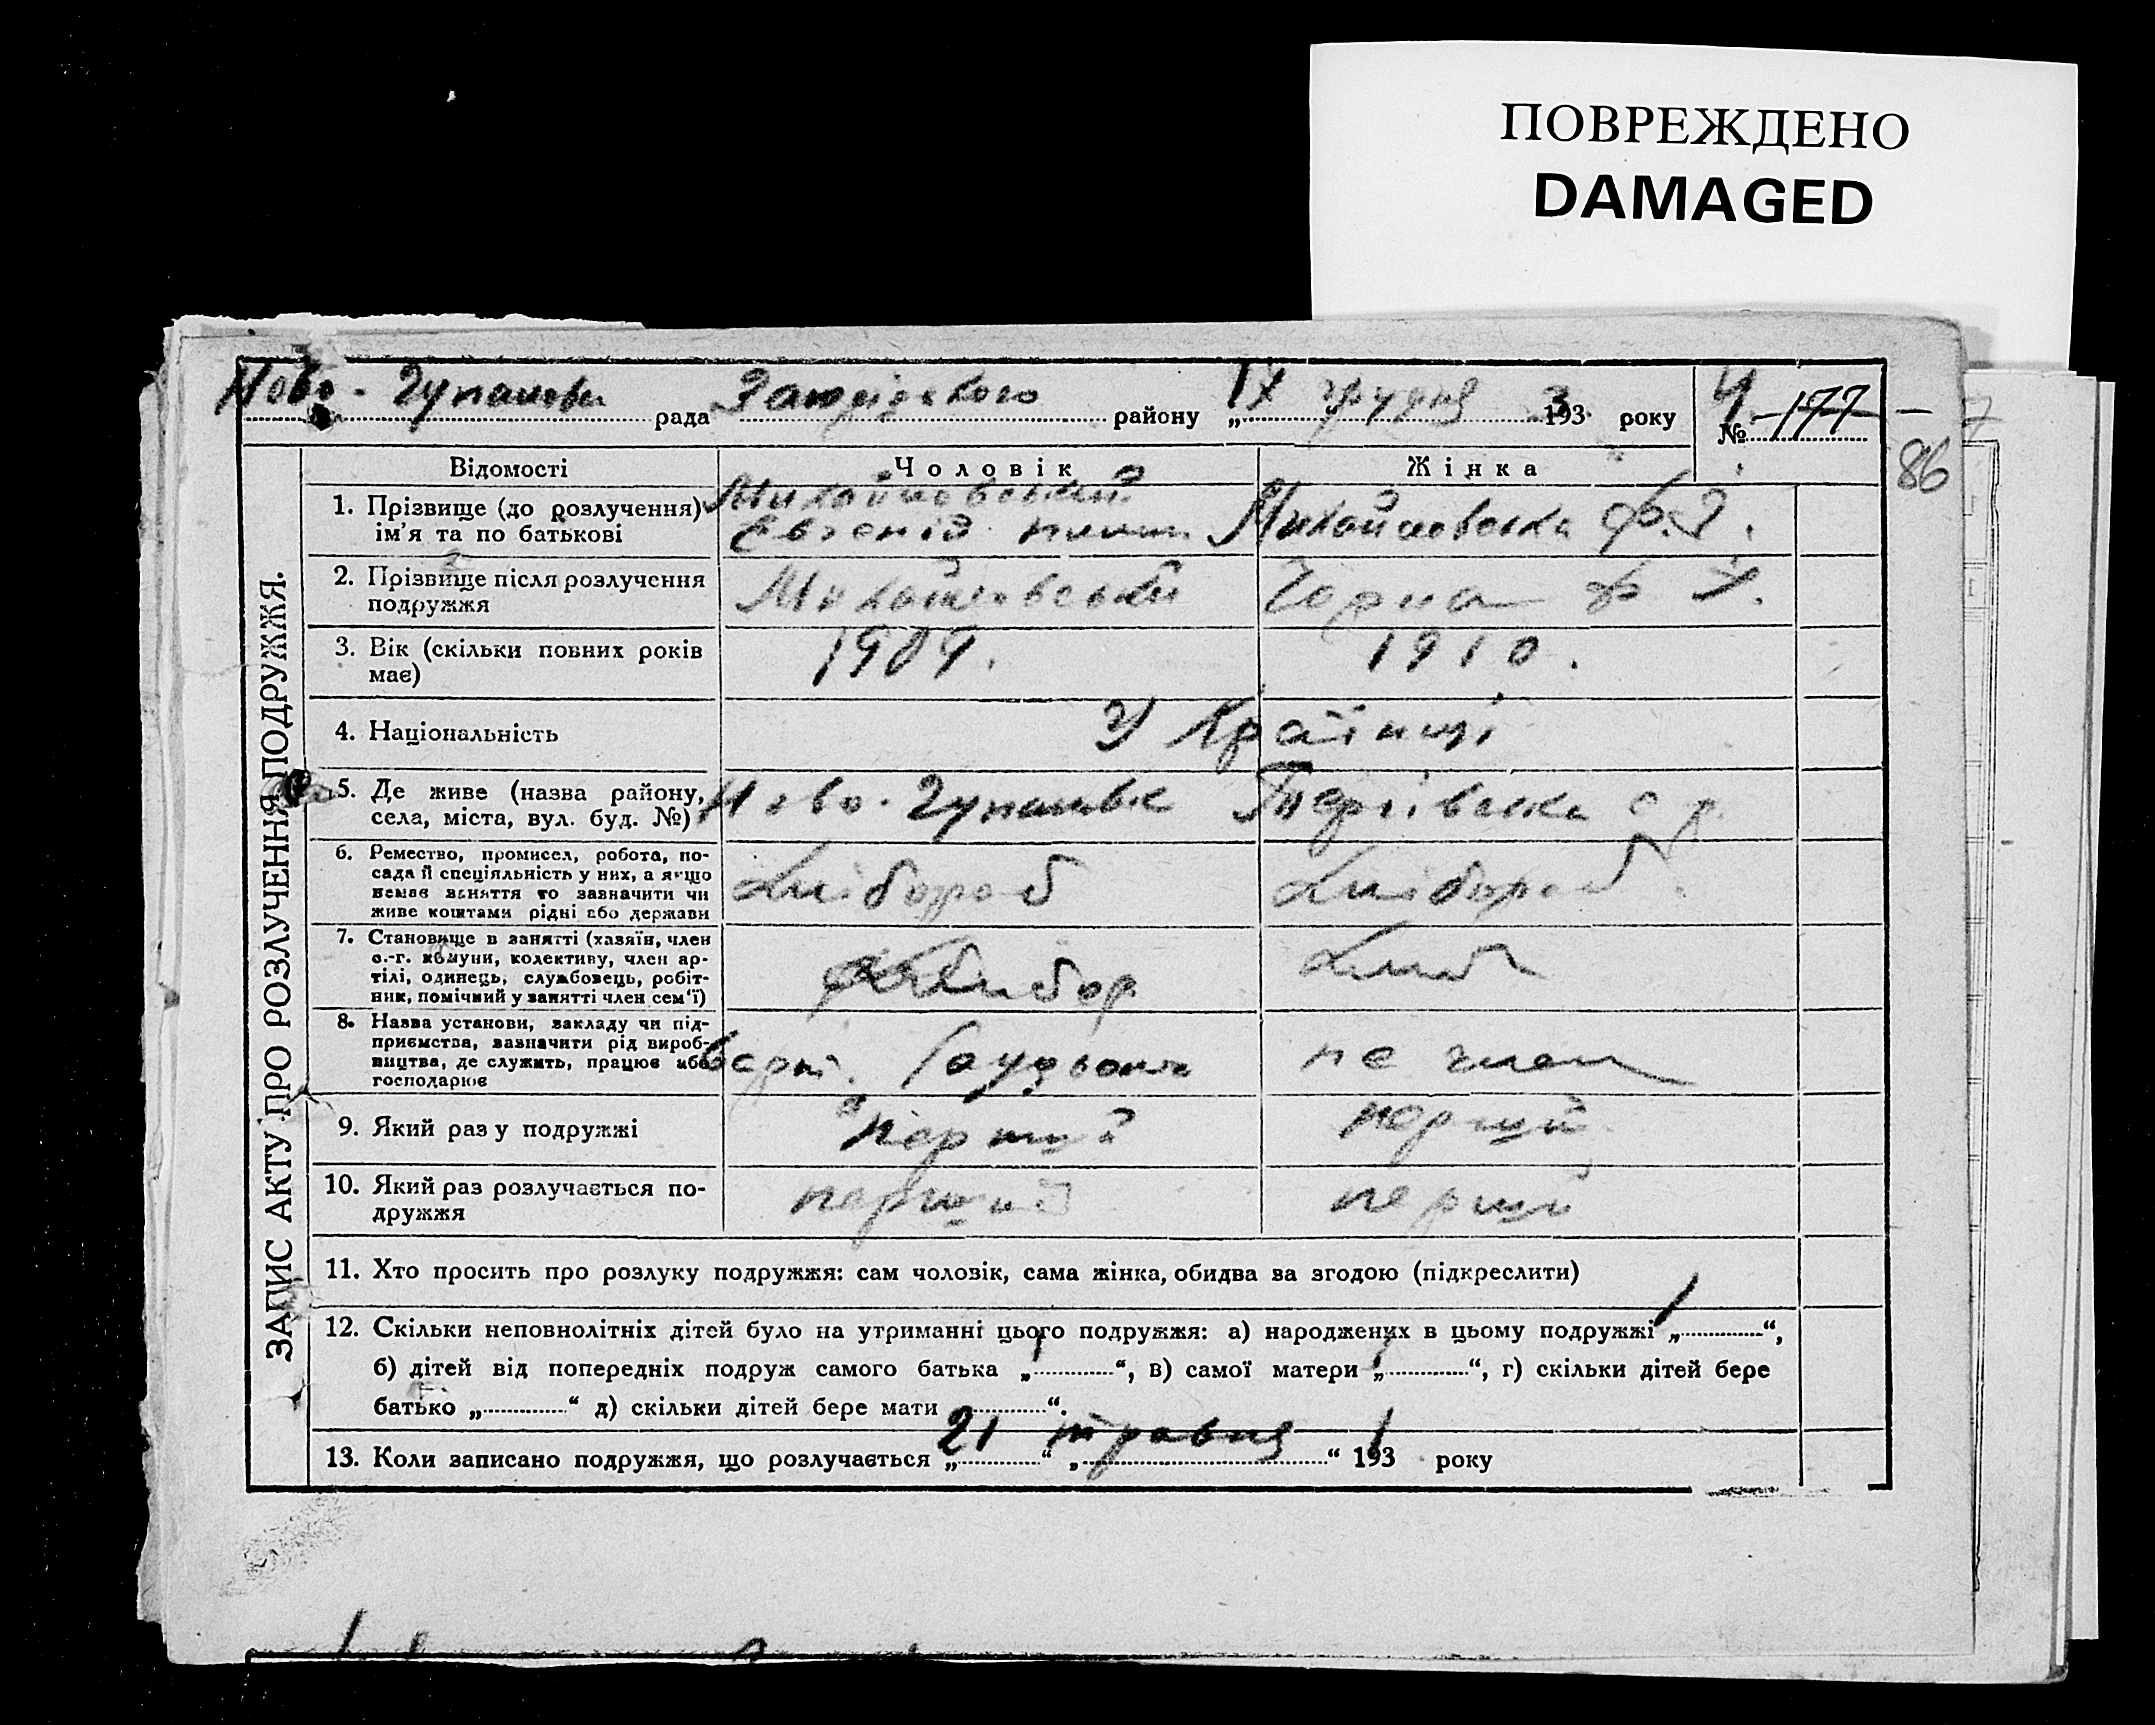 ПОВРЕЖДЕНО
DAMAGED
рада району „ грудня 193 3 року № 177
86
ЗАПИС АКТУ ПРО РОЗЛУЧЕННЯ ПОДРУЖЖЯ.
Відомості Чоловік Жінка
1. Прізвище (до розлучення) ім'я та по батькові Михайловський Евгеній Михайловська Ф.
2. Прізвище після розлучення подружжя Михайловський Чорна Ф
3. Вік (скільки повних років має) 1909. 1910.
4. Національність Україиці
5. Де живе (назва району, села, міста, вул. буд. №) Ново-
6. Ремество, промисел, робота, по-
сада й спеціяльність у них, а якщо
немає заняття то зазначити чи
живе коштами рідні або держави
Хлібороб Хлібороб
7. Становище в занятті (хазяїн, член
с.-г. комуни, колективу, член ар-
тілі, одинець, службовець, робіт-
ник, помічний у занятті член сем'ї)
8. Назва установи, закладу чи під-
приємства, зазначити рід вироб-
ництва, де служить, працює або
господарює
не член
9. Який раз у подружжі перший перший
10. Який раз розлучається по-
дружжя
перший перший
11. Хто просить про розлуку подружжя: сам чоловік, сама жінка, обидва за згодою (підкреслити)
12. Скільки неповнолітніх дітей було на утриманні цього подружжя: а) народжених в цьому подружжі „ 1 “,
б) дітей від попередніх подруж самого батька „ “, в) самої матери „ “, г) скільки дітей бере
батько „ “ д) скільки дітей бере мати “.
13. Коли записано подружжя, що розлучається „ 21 “ „ травня “ 193 1 року